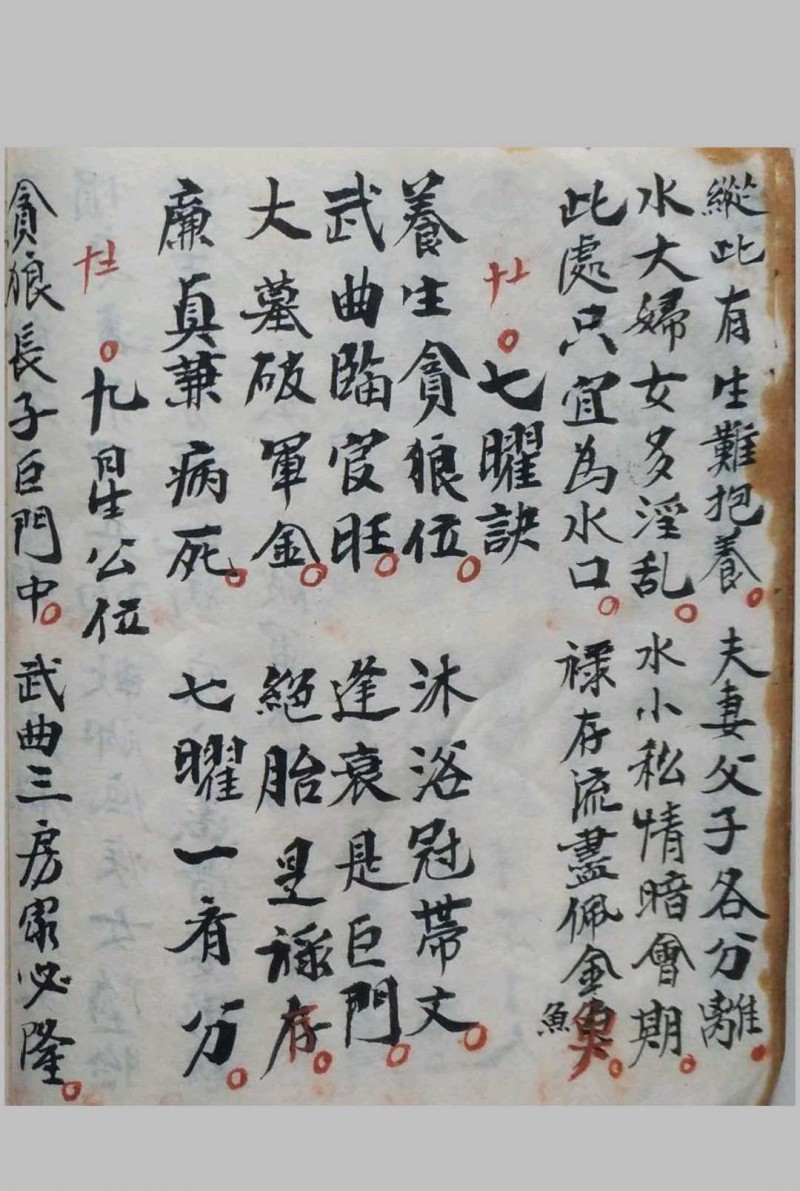 縱此有生難抱養。夫妻父子各分離。
水大婦女多淫乱。水小私情暗會期。
此處只宜為水口。禄存流盡佩金魚。
七曜訣
養生貪狼位。沐浴冠帶文。
武曲臨官旺。逢衰是巨門。
大墓破軍金。絕胎是祿存。
廉貞兼病死。七曜一看分。
九星公位
貪狼長子巨門中。武曲三房衆必隆。